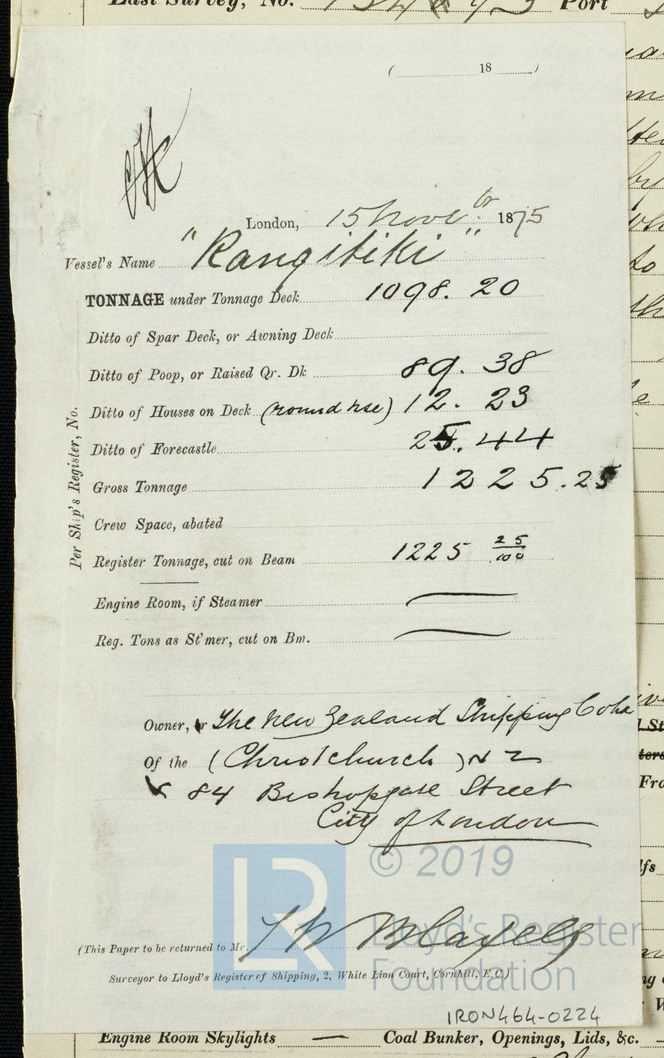 Last Survey, No. Port
( 18 )
London, 15 Novr. 1875
Vessel's Name "Rangitiki"
Per Ship's Register, No.
TONNAGE under Tonnage Deck 1098. 20
Ditto of Spar Deck, or Awning Deck
Ditto of Poop, or Raised Qr. Dk 89. 38
Ditto of Houses on Deck (round hse) 12. 23
Ditto of Forecastle 25. 44
Gross Tonnage 1225.25
Crew Space, abated
Register Tonnage, cut on Beam 1225 25/100
Engine Room, if Steamer
Reg. Tons as St'mer, cut on Bm.
Owner, The New Zealand Shipping
Of the (Christchurch) N Z
84 Bishopgate Street
City of London
© 2019
LR Lloyd's Register
Foundation
(This Paper to be returned to Mr.
Surveyor to Lloyd's Register of Shipping, 2, White Lion Court, Cornhill, E.C.)
IRON464-0224
Engine Room Skylights — Coal Bunker, Openings, Lids, &c.